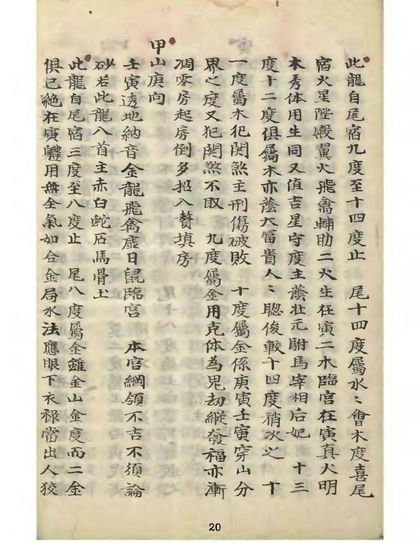 此龍自尾宿九度至十四度止　尾十四度屬水水會木度喜尾
宿火星陞殿翼火飛禽輔助二火生在寅二木臨宮在寅真火明
木秀体用生同又值吉星守度主蔭壮元駙馬宰相后妃　十三
度十二度俱屬木亦蔭大富貴人人聰俊較十四度稍次之　十
一度屬木犯関煞主刑傷破敗　十度屬金係庚寅壬寅穿山分
界之度又犯関煞不取　九度屬金用克体為鬼刧縱發福亦漸
凋零房起房倒多招八贅填房
甲山庚向
壬寅透地納音金龍飛禽虛日鼠臨宮　本宮綱領不吉不須論
砂若此龍八首主赤白蛇石馬骨土
此龍自尾宿三度至八度止　尾八度屬金雖金山金度而二金
俱己絶在寅軆用無全氣如合金局水法應眼下衣祿當出人狡
20